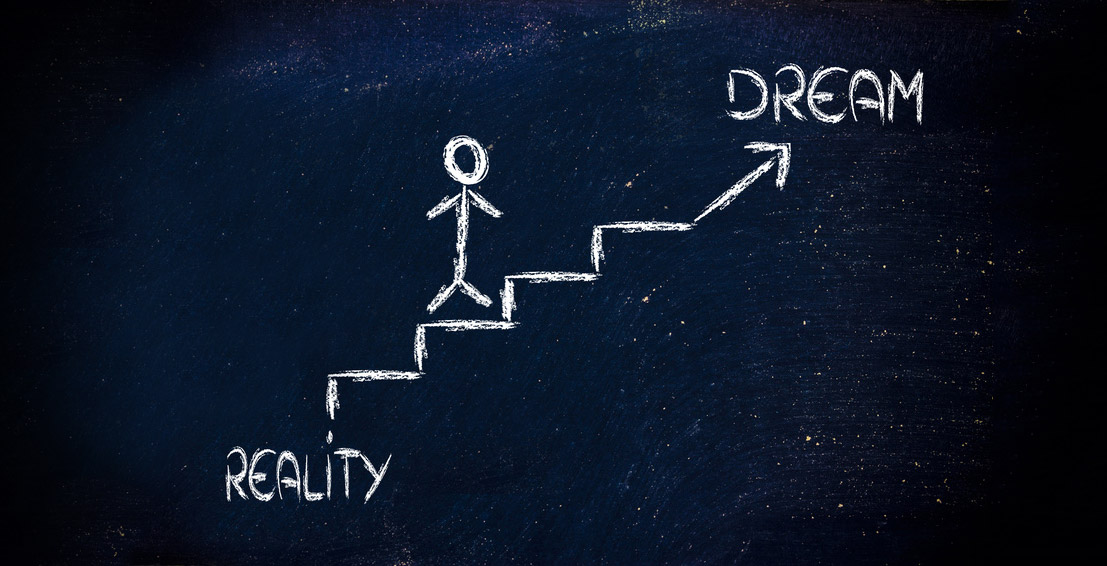 DREAM
REALiTY